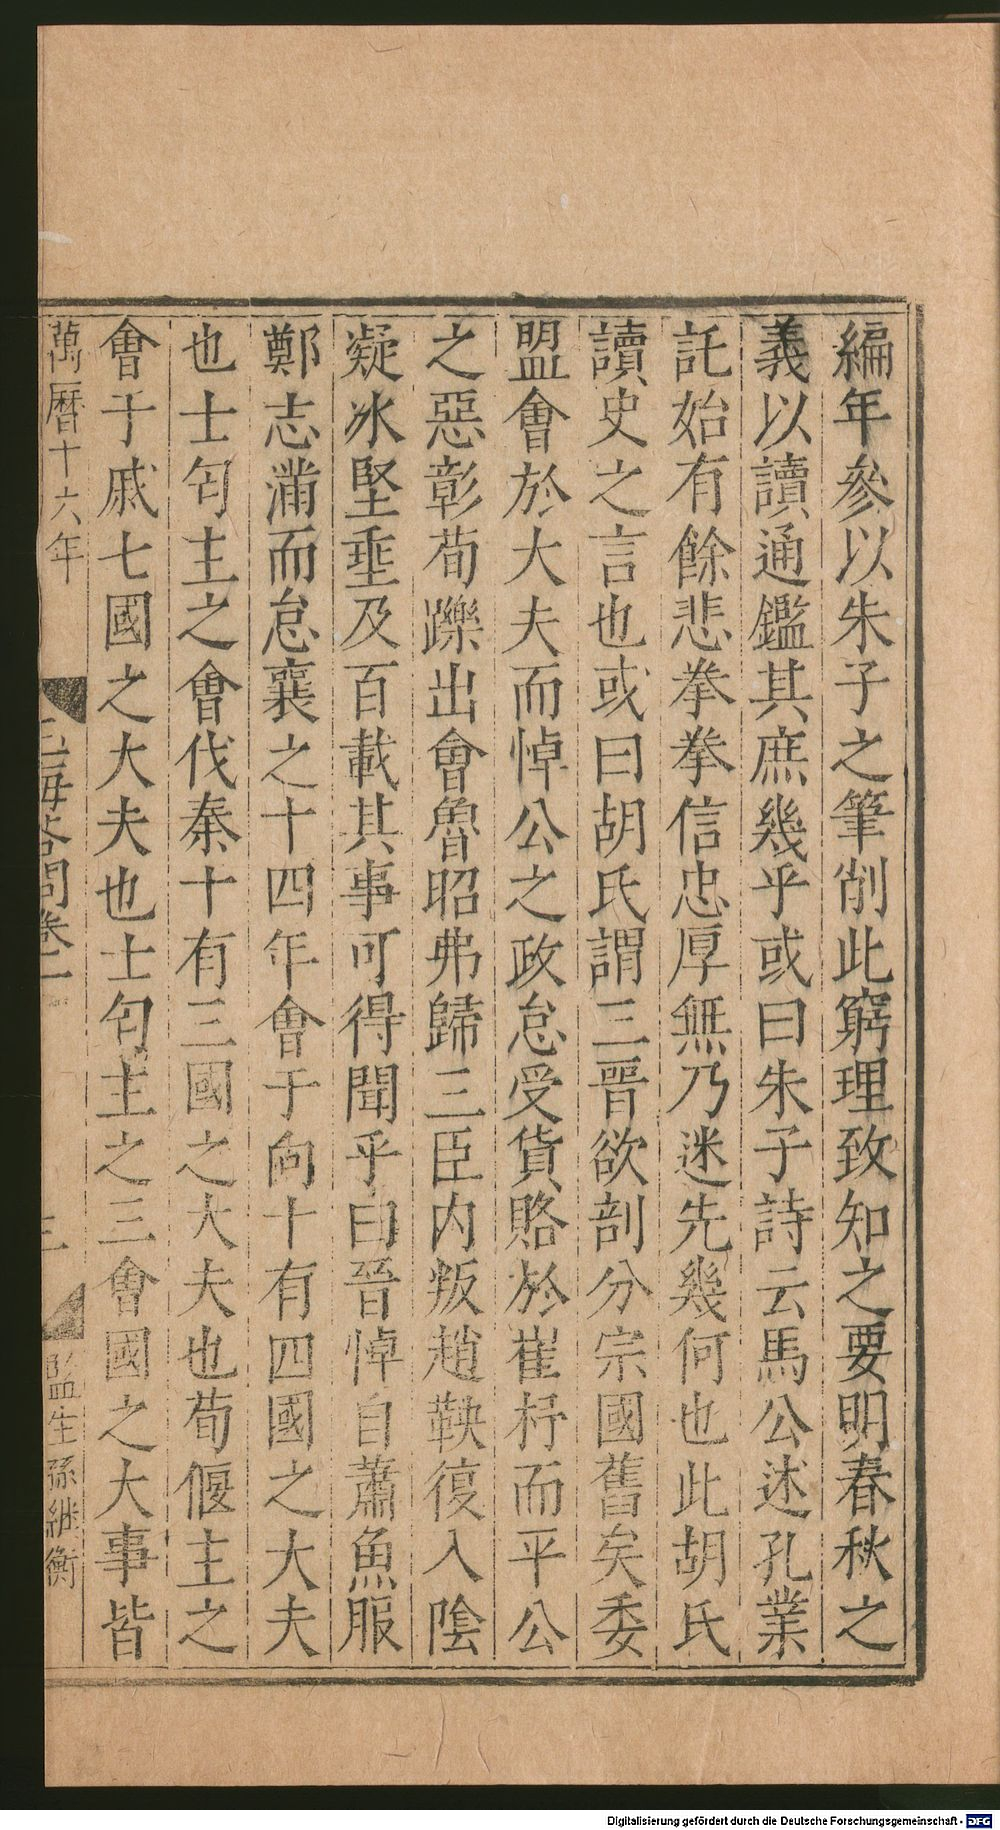 編年參以朱子之筆削此窮理致知之要明春秋之
義以讀通鑑其庶幾乎或曰朱子詩云馬公述孔業
託始有餘悲拳拳信忠厚無乃迷先幾何也此胡氏
讀史之言也或曰胡氏謂三晉欲剖分宗國舊矣委
盟會於大夫而悼公之政怠受貨賂於崔杼而平公
之惡彰荀躒出會魯昭弗歸三臣内叛趙鞅復入陰
凝冰堅垂及百載其事可得聞乎曰晉悼自蕭魚服
鄭志滿而怠襄之十四年會于向十有四國之大夫
也士匄主之會伐秦十有三國之大夫也荀偃主之
會于戚七國之大夫也士匄主之三會國之大事皆
萬曆十六年
海答問卷二
三
監生孫繼衡
Digitalisierung gefördert durch die Deutsche Forschungsgemeinschaft - DFG